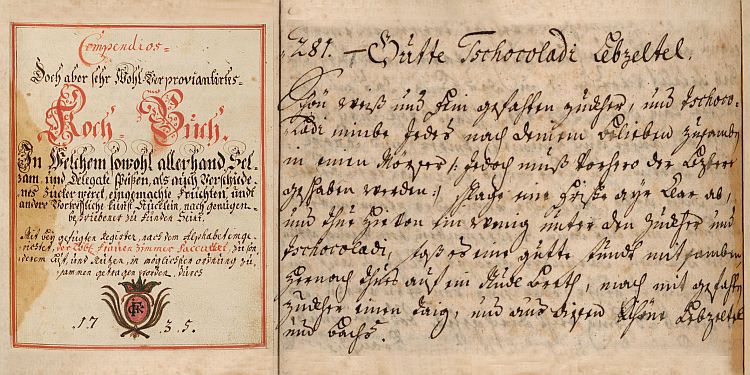 Compendios=
Doch aber sehr Wohl-Verproviantirtes=
Koch= Buch.
In Welchem sowohl allerhand Sel=
zam, und Delegate speißen, als auch Verschiede=
nes Zucker werck, eingemachte Früchten, undt
andere Vortreffliche Kunst Stücklein, nach genügen
beschriebener zu finden seint.
Mit bey gefügten Register, nach dem Alphabet einge=
richtet, der Löbl: Frauen Zimmer Facultet, zu son=
derem Lust, und Nutzen, in möglichsten ordnung zu=
sammen getragen worden,
.17 35.
281. – Gutte Tschocoladi Lebzeltel.
Schön weiß und Fein gefähten zuckher, und Tschoco=
Ladi nimbe jedes nach deinem belieben zusamben
in einen Morser /: jedoch muß Vorhero der Letztere
geschaben werden :/ schlage eine Friske ayr klar ab,
und thue hievon ein wenig unter den zuckher und
Tschocoladi, laß es eine gutte stundt mit samben
hernach thues auf ein Nudl breth, mach mit gefähten
zuckher einen taig, und aus disen schöne Lebzeltel
und bachs.